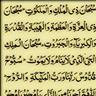 سُبْحَانَ ذِي الْمُلْكِ وَالْمَلَكُوتِ سُبْحَانَ
ذِي الْعِزَّةِ وَالْعَظَمَةِ وَالْهَيْبَةِ وَالْقُدْرَةِ
وَالْكِبْرِيَاءِ وَالْجَبَرُوتِ سُبْحَانَ الْمَلِكِ
الْحَيِّ الَّذِي لَا يَنَامُ وَلَا يَمُوتُ سُبُّوحٌ
قُدُّوسٌ رَبُّنَا وَرَبُّ الْمَلَائِكَةِ وَالرُّوحِ